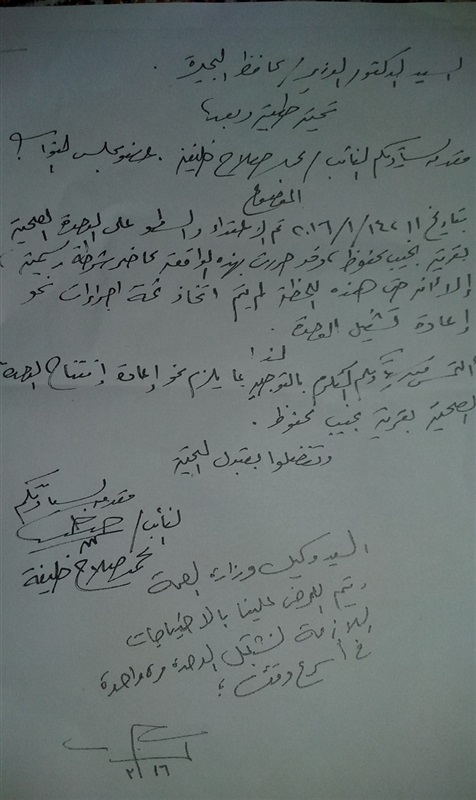 السيد الدكتور الوزير / محافظ البحيرة .
تحية طيبة وبعد ،،
مقدمه لسيادتكم النائب / محمد صلاح خليفة . عضو مجلس النواب
الموضوع
بتاريخ ١٤ / ١ / ٢٠١٦ تم الاعتداء والسطو على الوحدة الصحية
بقرية نجيب محفوظ ، وقد حررت بهذه الواقعة محاضر شرطة رسمية ،
إلا أنه حتى هذه اللحظة لم يتم اتخاذ ثمة اجراءات نحو
إعادة تشغيل الوحدة .
لذا
التمس من سيادتكم التكرم بالتوجيه بما يلزم نحو إعادة إفتتاح الوحدة
الصحية بقرية نجيب محفوظ .
وتفضلوا بقبول التحية
مقدمه لسيادتكم
النائب /
محمد صلاح خليفة
السيد وكيل وزارة الصحة
يتم العرض علينا بالاحتياجات
اللازمة لتشغيل الوحدة مرة واحدة
في أسرع وقت ؛
٣ / ١٦